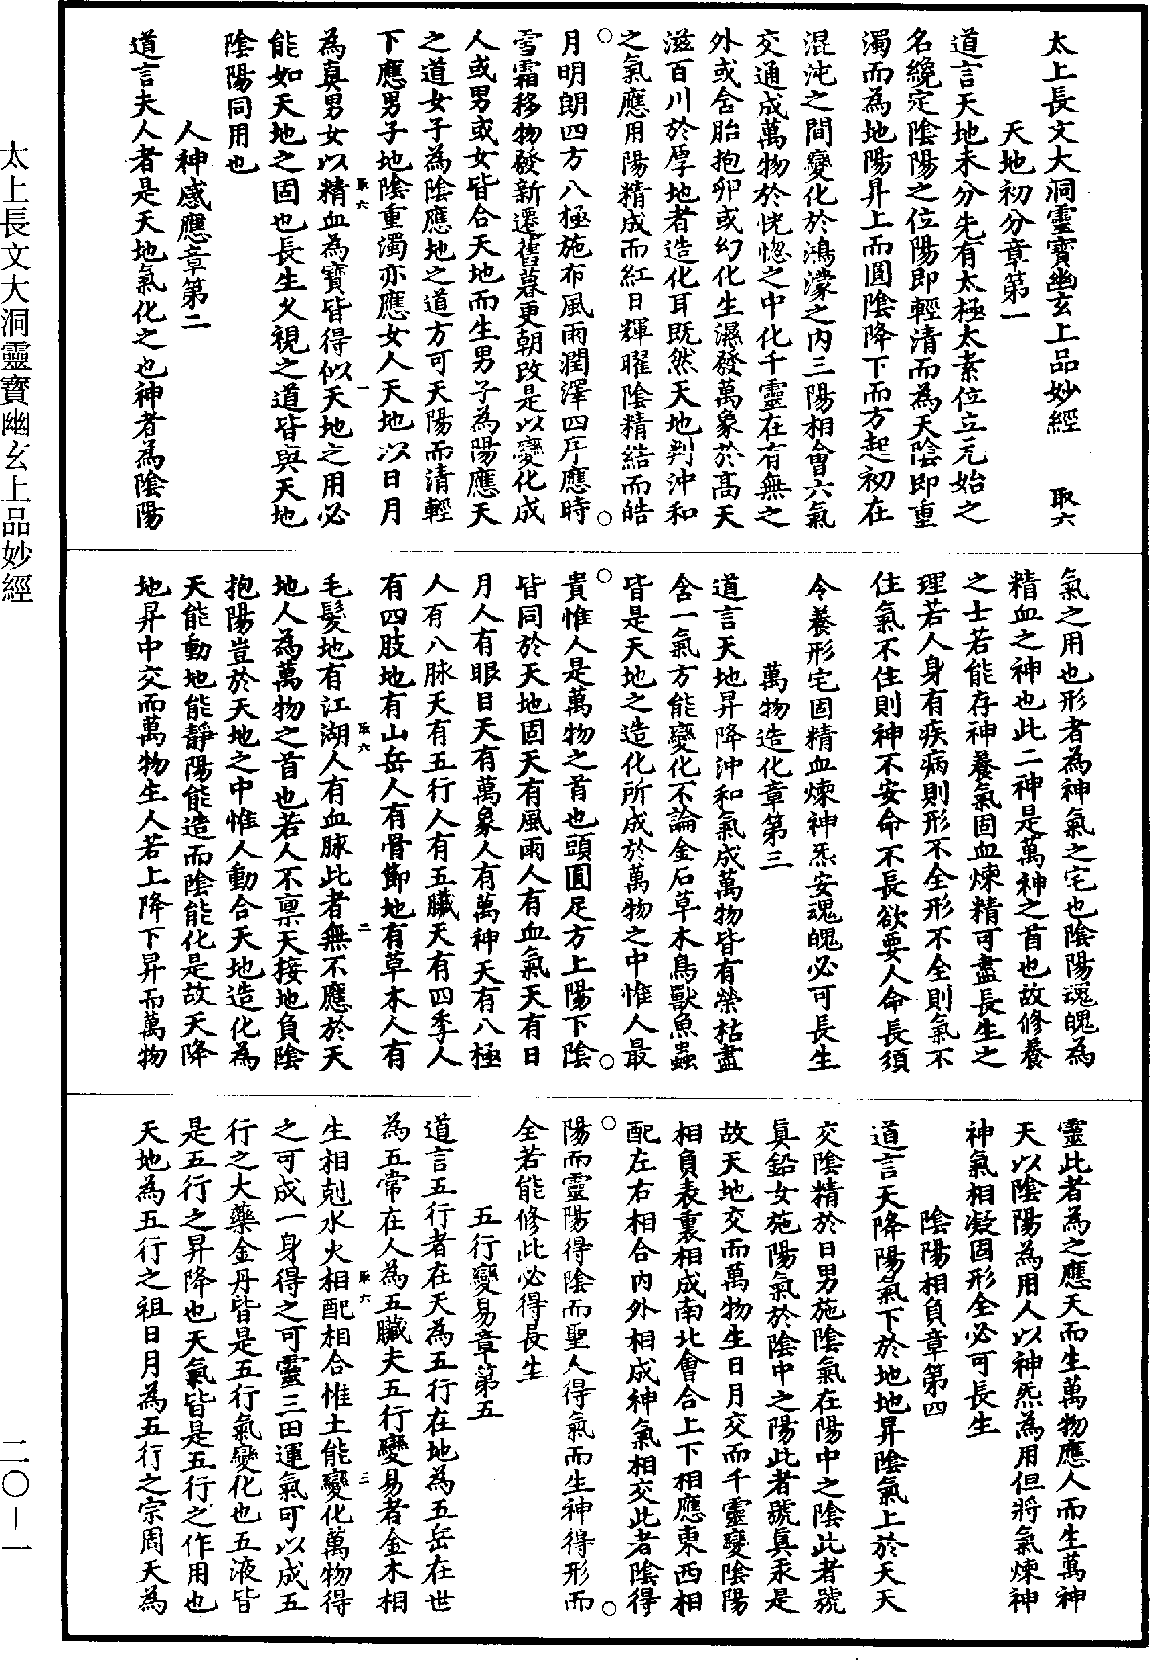 太上長文大洞靈寶幽玄上品妙經　取六
天地初分章第一
道言天地未分先有太極太素位立元始之
名纔定陰陽之位陽即輕清而為天陰即重
濁而為地陽昇上而圓陰降下而方起初在
混沌之間變化於鴻濛之內三陽相會六氣
交通成萬物於恍惚之中化千靈在有無之
外或含胎抱卵或幻化生濕發萬象於高天
滋百川於厚地者造化耳既然天地判沖和
之氣應用陽精成而紅日輝曜陰精結而皓
月明朗四方八極施布風雨潤澤四序應時
雪霜移物發新還舊暮更朝改是以變化成
人或男或女皆合天地而生男子為陽應天
之道女子為陰應地之道方可天陽而清輕
下應男子地陰重濁亦應女人天地以日月
為真男女以精血為寶皆得似天地之用必
能如天地之固也長生久視之道皆與天地
陰陽同用也
人神感應章第二
道言夫人者是天地氣化之也神者為陰陽
氣之用也形者為神氣之宅也陰陽魂魄為
精血之神也此二神是萬神之首也故修養
之士若能存神養氣固血煉精可盡長生之
理若人身有疾病則形不全形不全則氣不
住氣不住則神不安命不長欲要人命長須
令養形宅固精血煉神炁安魂魄必可長生
萬物造化章第三
道言天地昇降沖和氣成萬物皆有榮枯盡
含一氣方能變化不論金石草木鳥獸魚蟲
皆是天地之造化所成於萬物之中惟人最
貴惟人是萬物之首也頭圓足方上陽下陰
皆同於天地固天有風雨人有血氣天有日
月人有眼目天有萬象人有萬神天有八極
人有八脉天有五行人有五臟天有四季人
有四肢地有山岳人有骨節地有草木人有
毛髮地有江湖人有血脉此者無不應於天
地人為萬物之首也若人不稟天接地負陰
抱陽豈於天地之中惟人動合天地造化為
天能動地能靜陽能造而陰能化是故天降
地昇中交而萬物生人若上降下昇而萬物
靈此者為之應天而生萬物應人而生萬神
天以陰陽為用人以神炁為用但將氣煉神
神氣相凝固形全必可長生
陰陽相負章第四
道言天降陽氣下於地地昇陰氣上於天天
交陰精於日男施陰氣在陽中之陰此者號
真鉛女施陽氣於陰中之陽此者號真汞是
故天地交而萬物生日月交而千靈變陰陽
相負表裏相成南北會合上下相應東西相
配左右相合內外相成神氣相交此者陰得
陽而靈陽得陰而聖人得氣而生神得形而
全若能修此必得長生
五行變易章第五
道言五行者在天為五行在地為五岳在世
為五常在人為五臟夫五行變易者金木相
生相剋水火相配相合惟土能變化萬物得
之可成一身得之可靈三田運氣可以成五
行之大藥金丹皆是五行氣變化也五液皆
是五行之昇降也天氣皆是五行之作用也
天地為五行之祖日月為五行之宗周天為
取六
一
取六
二
取六
三
太上長文大洞靈寶幽玄上品妙經
二〇－一